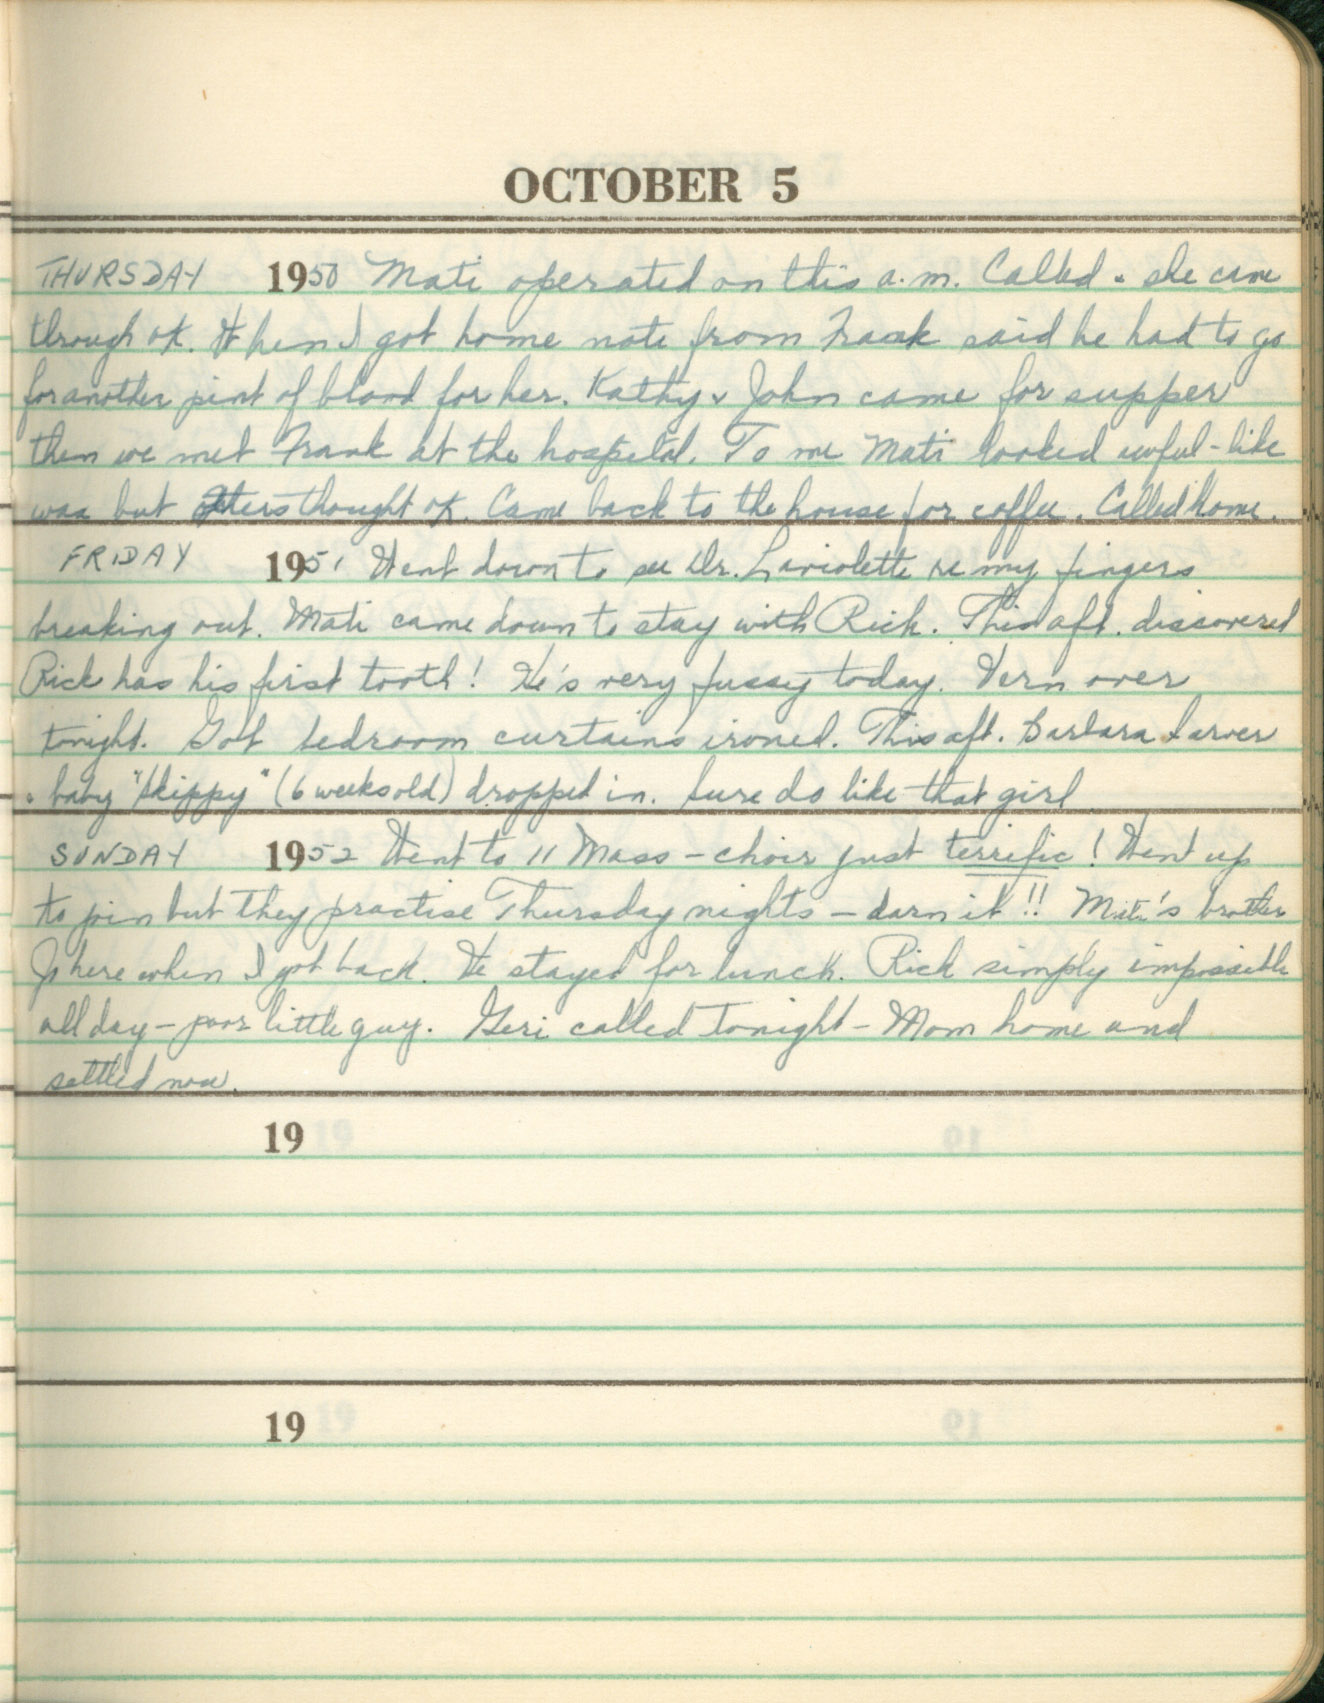 OCTOBER 5
THURSDAY 1950 Mati operated on this a.m. Called & she came
through ok. When I got home note from Frank said he had to go
for another pint of blood for her. Kathy & John came for supper
then we met Frank at the hospital. To me Mati looked awful - like
wax but others thought ok. Came back to the house for coffee. Called home.
FRIDAY 1951 Went down to see Dr. Laviolette re my fingers
breaking out. Mati came down to stay with Rick. This aft. discovered
Rick has his first tooth! He's very fussy today. Vern over
tonight. Got bedroom curtains ironed. This aft. Barbara
& baby "Skippy" (6 weeks old) dropped in. Sure do like that girl
SUNDAY 1952 Went to 11 Mass - choir just terrific! Went up
to join but they practise Thursday nights - darn it!! Mati's brother
Jo here when I got back. He stayed for lunch. Rick simply impossible
all day - poor little guy. Geri called tonight - Mom home and
settled now.
19
19